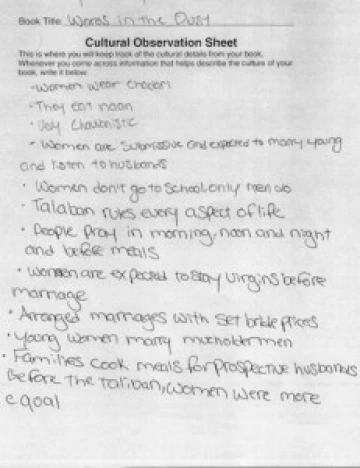 Book Title: Words in the Dust
Cultural Observation Sheet
This is where you will keep track of the cultural details from your book.
Whenever you come across information that helps describe the culture of your
book, write it below.
- Women wear chadari
• They eat naan
• Very chauvinistic
- Women are submissive and expected to marry young
and listen to husbands
• Women don't go to school, only men do
• Talaban rules every aspect of life
• People pray in morning, noon and night
and before meals
• Women are expected to stay virgins before
marriage
• Arranged marriages with set bride prices
• Young women marry much older men
• Families cook meals for prospective husbands
Before the Taliban, women were more
equal